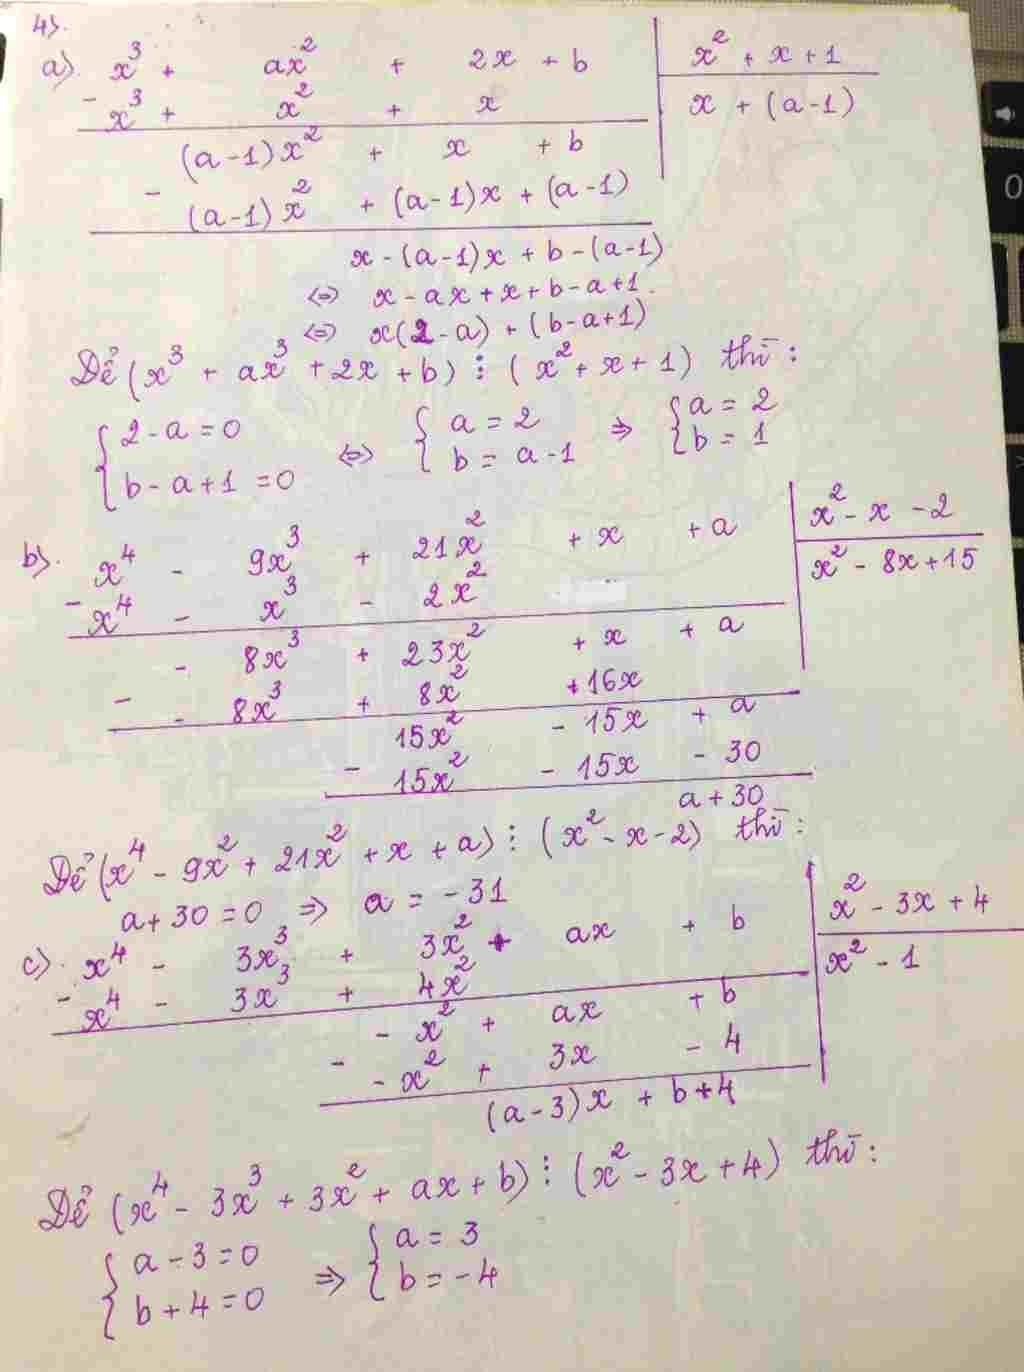 4).
a) x³ + ax² + 2x + b | x² + x + 1
- x³ + x² + x | x + (a-1)
(a-1)x² + x + b
- (a-1)x² + (a-1)x + (a-1)
x - (a-1)x + b - (a-1)
⇔ x - ax + x + b - a + 1.
⇔ x(2-a) + (b-a+1)
Để (x³ + ax³ + 2x + b) ⋮ (x² + x + 1) thì:
{ 2-a = 0 ⇔ { a = 2 ⇒ { a = 2
{ b-a+1 = 0 { b = a-1 { b = 1
b). x⁴ - 9x³ + 21x² + x + a | x² - x - 2
- x⁴ - x³ - 2x² | x² - 8x + 15
- 8x³ + 23x² + x + a
- - 8x³ + 8x² + 16x
15x² - 15x + a
- 15x² - 15x - 30
a + 30
Để (x⁴ - 9x² + 21x² + x + a) ⋮ (x² - x - 2) thì:
a + 30 = 0 ⇒ a = -31
c). x⁴ - 3x³ + 3x² + ax + b | x² - 3x + 4
- x⁴ - 3x³ + 4x² | x² - 1
- x² + ax + b
- - x² + 3x - 4
(a-3)x + b + 4
Để (x⁴ - 3x³ + 3x² + ax + b) ⋮ (x² - 3x + 4) thì:
{ a - 3 = 0 ⇒ { a = 3
{ b + 4 = 0 { b = -4